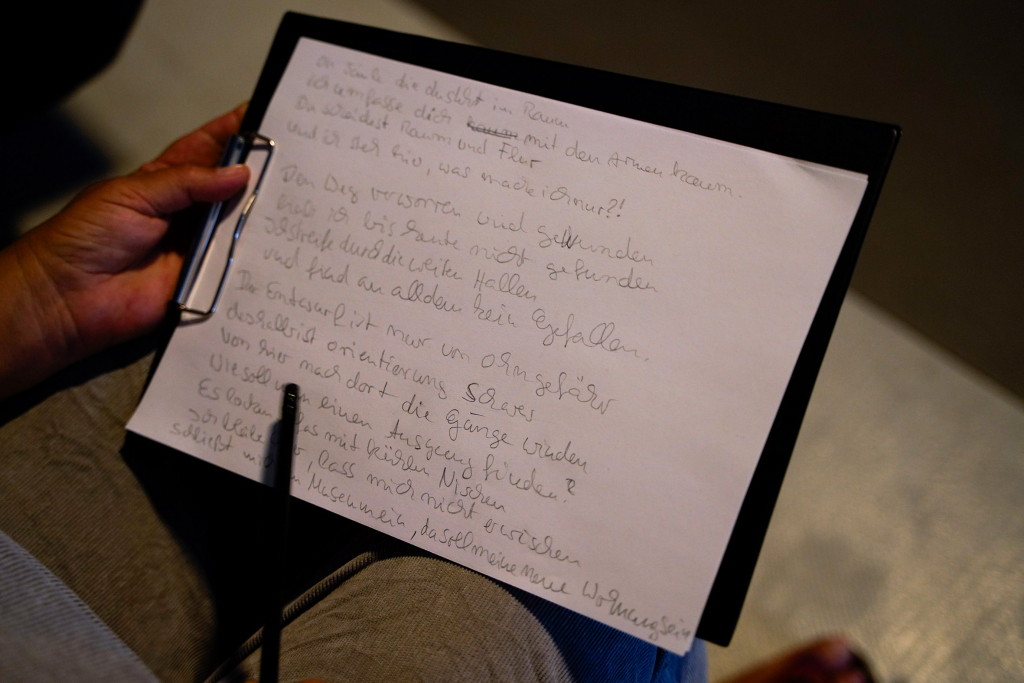 die du stehst im Raum
ich umfasse dich mit den Armen kaum.
Du scheidest Raum und Flur
und ich steh hier, was mach ich nur?!
Den Weg verworren und gewunden
hab ich bis heute nicht gefunden
Ich streife durch die weiten Hallen
und find an alldem kein Gefallen.
Der Entwurf ist nur um ohngefähr
deshalb ist orientierung schwer
von hier nach dort die Gänge winden
Wie soll einen Ausgang finden?
Es locken mit kühlen Nischen
Ich bleibe lass mich nicht erwischen
schließt Museum ein, das soll meine neue Wohnung sein